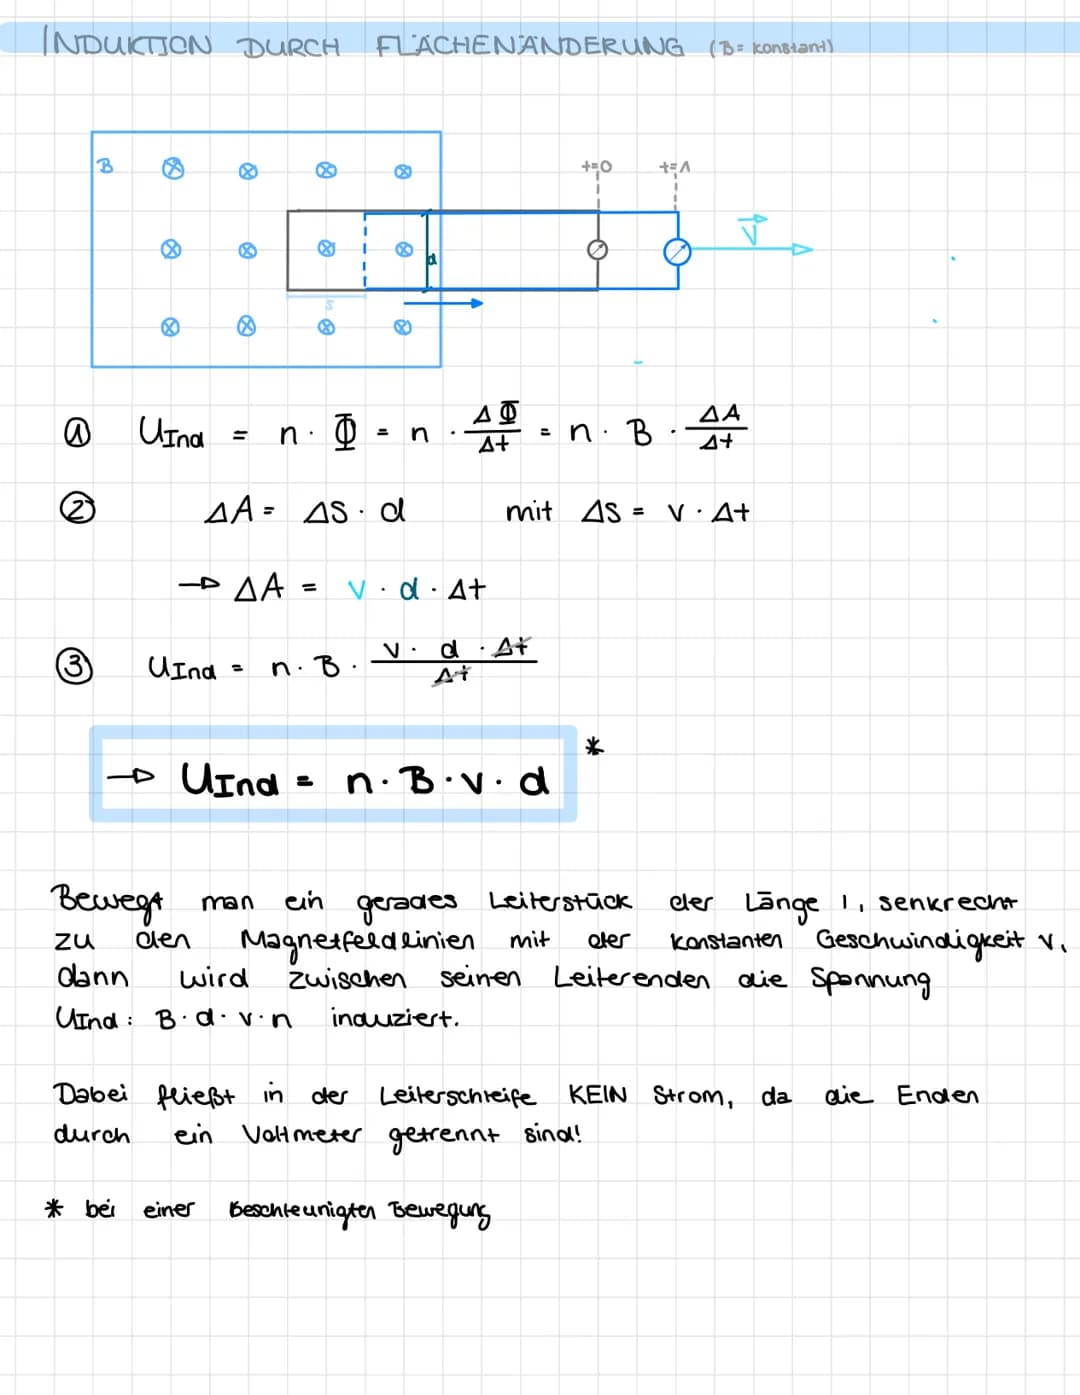 INDUKTION DURCH FLÄCHENÄNDERUNG (B= konstant)
B
t=0 t=1
V
d
s
① UInd = n · Φ = n · ΔΦ/Δt = n · B · ΔA/Δt
② ΔA = ΔS · d mit ΔS = v · Δt
→ ΔA = v · d · Δt
③ UInd = n · B · v · d · Δt/Δt
→ UInd = n · B · v · d *
Bewegt man ein gerades Leiterstück der Länge l, senkrecht
zu den Magnetfeldlinien mit der konstanten Geschwindigkeit v,
dann wird zwischen seinen Leiterenden die Spannung
UInd : B · d · v · n induziert.
Dabei fließt in der Leiterschleife KEIN Strom, da die Enden
durch ein Voltmeter getrennt sind!
* bei einer Beschleunigten Bewegung